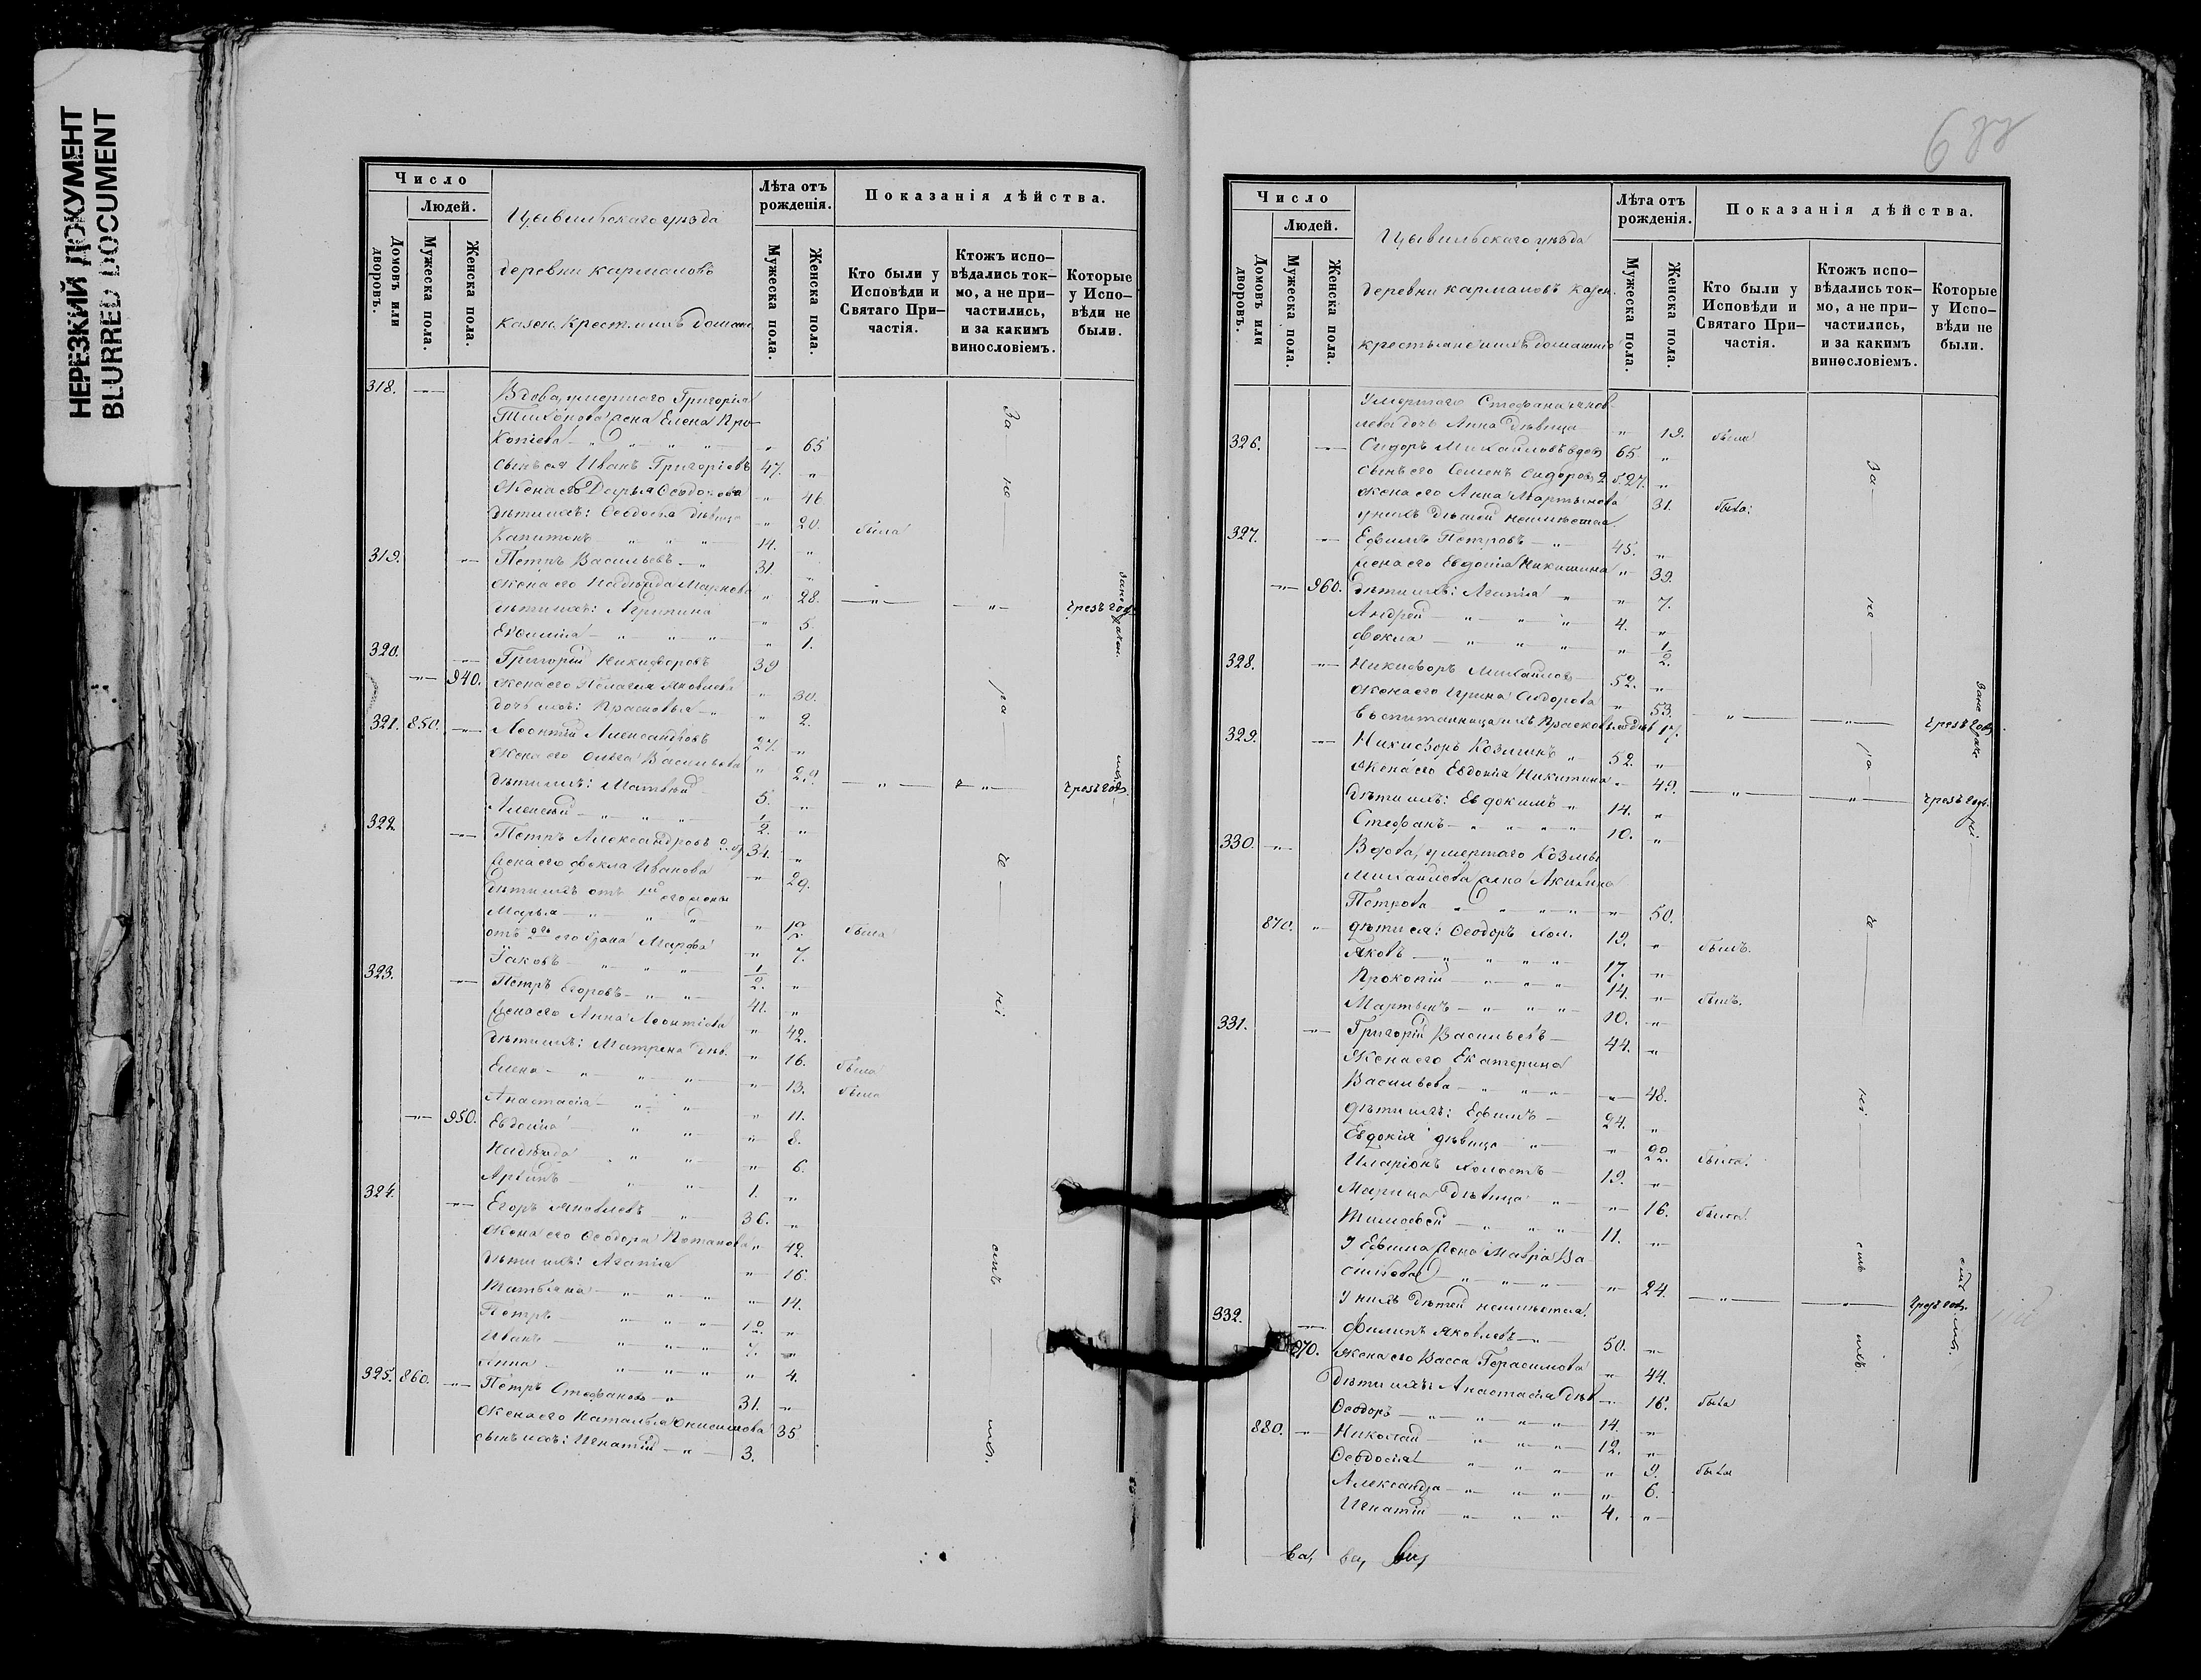 НЕРЕЗКИЙ ДОКУМЕНТ
BLURRED DOCUMENT
Число
Людей.
Домовъ или дворовъ.
Мужеска пола.
Женска пола.
Цывильскаго уѣзда
деревни Кармаловъ
казен. крест. и ихъ домашн.
Лѣта отъ рожденія.
Мужеска пола.
Женска пола.
Показанія дѣйства.
Кто были у Исповѣди и Святаго Причастія.
Ктожъ исповѣдались токмо, а не причастились, и за какимъ винословіемъ.
Которые у Исповѣди не были.
318. Вдова, умершаго Григорія
Тихонова жена Елена Про-
копіева 65
сынъ ея Иванъ Григоріевъ 47.
Жена его Дарья Ѳеодорова 46
дѣти ихъ: Ѳеодосья дѣвица 20. была
Капитонъ 14.
319. Петръ Васильевъ 31.
Жена его Надежда Маркова 28.
дѣти ихъ: Агрипина 5.
Евфимія 1.
320. Григорій Никифоровъ 39
940. Жена его Пелагея Яковлева 30.
дочь ихъ: Прасковья 2.
321. 850. Леонтій Александровъ 27.
Жена его Ольга Васильева 29
дѣти ихъ: Матвей 5.
Алексей 1/2.
322. Петръ Александровъ 2 бр 34.
Жена его Фекла Иванова 29.
дѣти ихъ отъ 1й его жены
Марья 12 была
отъ 2го его брака Марфа 7.
Іаковъ 1/2.
323. Петръ Егоровъ 41.
Жена его Анна Леонтіева 42.
дѣти ихъ: Матрена дѣв. 16. была
Елена 13. была
Анастасія 11.
950. Евдокія 8.
Надежда 6.
Архипъ 1.
324. Егоръ Яковлевъ 36.
Жена его Ѳеодора Потапова 42.
дѣти ихъ: Агапія 16.
Татьяна 14.
Петръ 12.
Иванъ 7.
Анна 4.
325. 860. Петръ Стефановъ 31.
Жена его Наталья Онисимова 35
сынъ ихъ: Игнатій 3.
чрезъ годъ.
чрезъ годъ.
677
Число
Людей.
Домовъ или дворовъ.
Мужеска пола.
Женска пола.
Цывильскаго уѣзда
деревни Кармаловъ казен.
крестьяне и ихъ домашніе
Лѣта отъ рожденія.
Мужеска пола.
Женска пола.
Показанія дѣйства.
Кто были у Исповѣди и Святаго Причастія.
Ктожъ исповѣдались токмо, а не причастились, и за какимъ винословіемъ.
Которые у Исповѣди не были.
Умершаго Стефана Яков-
лева дочь Анна дѣвица 19. была
326. Сидоръ Михайловъ вдов 65
сынъ его Семенъ Сидоровъ 2 б. 27.
Жена его Анна Мартынова 31. была:
у нихъ дѣтей неимѣется.
327. Ефимъ Петровъ 45.
Жена его Евдокія Никитина 39.
960. дѣти ихъ: Агапія 7.
Андрей 4.
Фекла 1/2.
328. Никифоръ Михайловъ 52.
Жена его Ирина Сидорова 53.
воспитанница ихъ Прасковья дѣв 17.
чрезъ годъ
329. Никифоръ Козминъ 52.
Жена его Евдокія Никитина 49.
дѣти ихъ: Евдокимъ 14.
чрезъ годъ.
Стефанъ 10.
330. Вдова, умершаго Козмы
Михайлова жена Акилина
Петрова 50.
870. дѣти ея: Ѳеодоръ хол. 19. былъ.
Яковъ 17.
Прокопій 14. былъ.
Мартынъ 10.
331. Григорій Васильевъ 44.
Жена его Екатерина
Васильева 48.
дѣти ихъ: Ефимъ 24.
Евдокія дѣвица 22. была.
Иларіонъ холостъ 19.
Марина дѣвица 16. была.
Тимофей 11.
У Ефима жена Мавра Ва
сильева 24.
У нихъ дѣтей неимѣется.
чрезъ годъ.
332. Филипъ Яковлевъ 50.
970. Жена его Васса Герасимова 44.
дѣти ихъ: Анастасія дѣв 16. была
Ѳеодоръ 14.
880. Николай 12.
Ѳеодосія 9. была
Александра 6.
Игнатій 4.